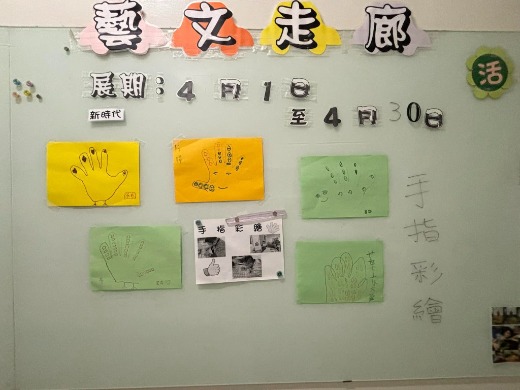 藝文走廊
活
展期：4月1日
至4月30日
新時代
手指彩繪
手指彩繪